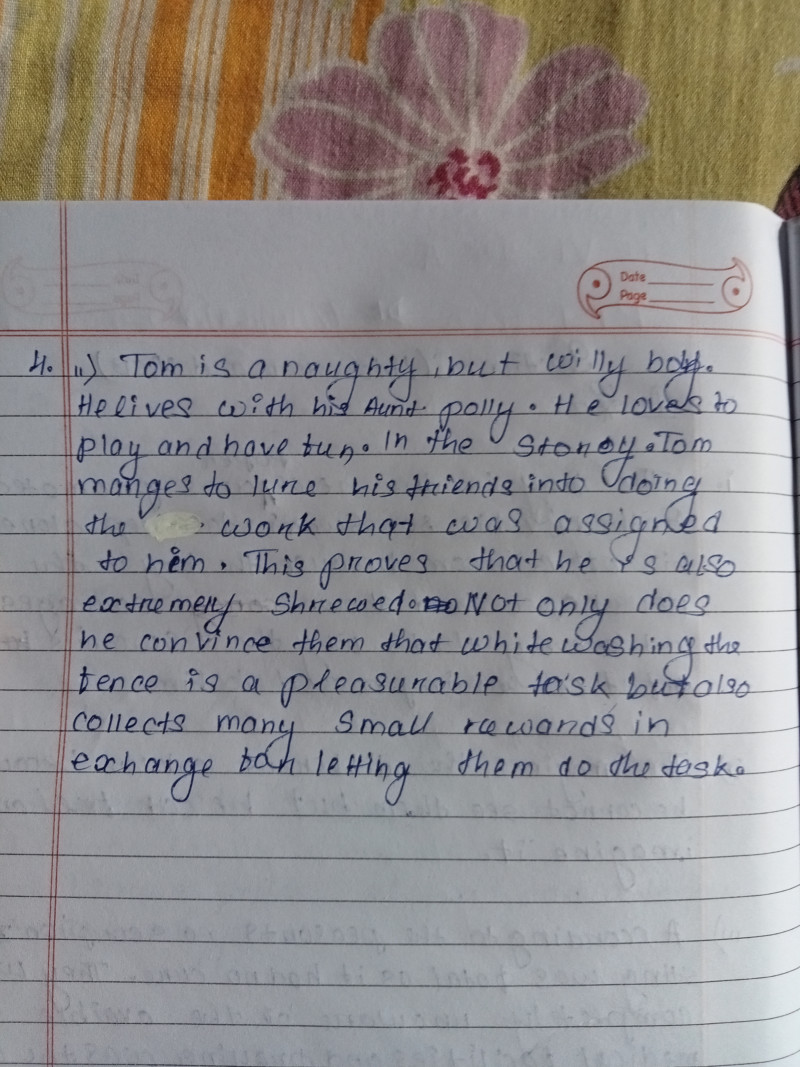 Date
Page
4. ii) Tom is a naughty, but willy boy.
He lives with his Aunt polly. He loves to
play and have fun. In the Storey. Tom
manges to lure his friends into doing
the work that was assigned
to him. This proves that he is also
extremely Shrewed. Not only does
he convince them that whitewashing the
fence is a pleasurable task but also
collects many Small rewards in
exchange for letting them do the task.